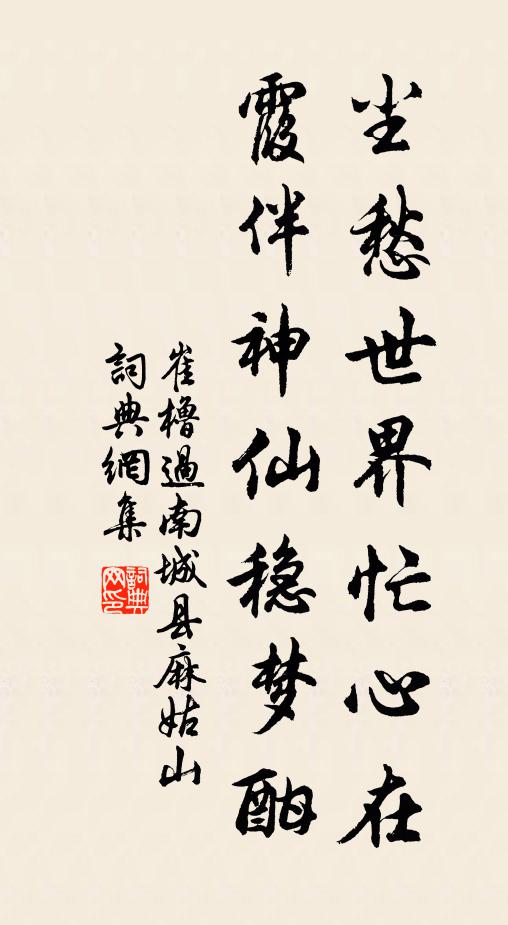 尘愁世界忙心在
霞伴神仙稳梦酣
崔櫓過南城县麻姑山
詞典網集
詞典
网印